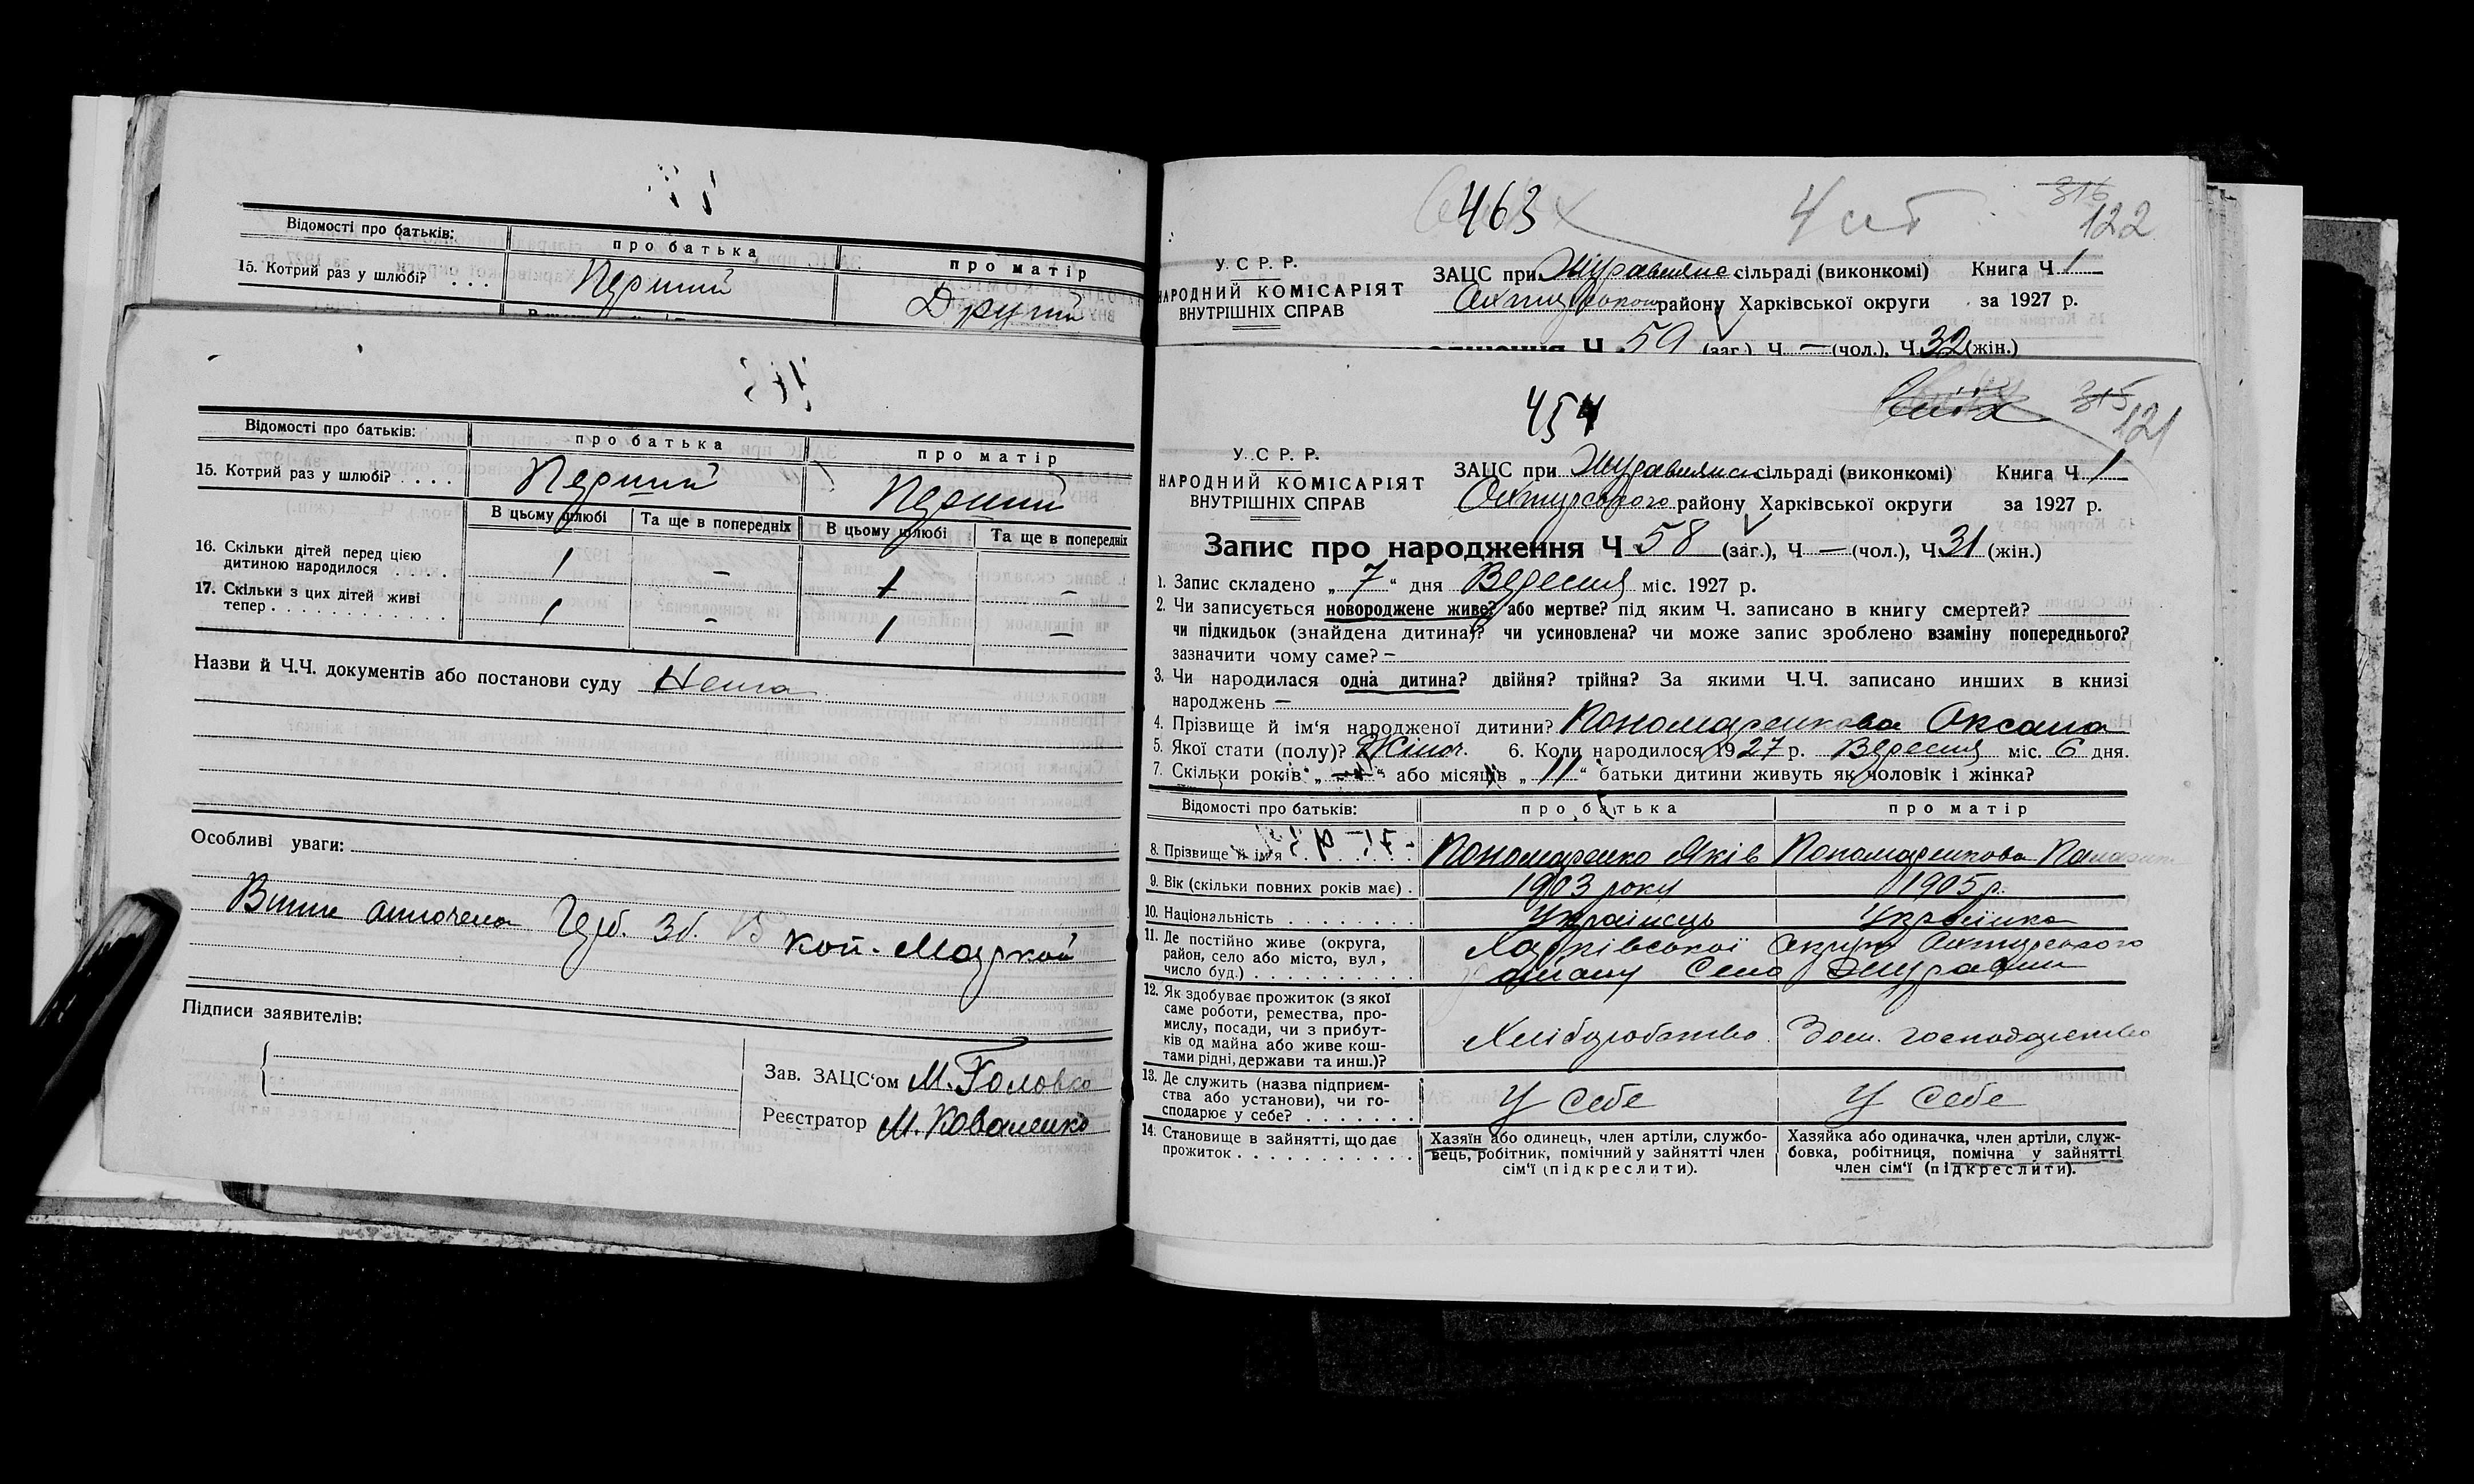 Відомості про батьків: про батька про матір
15. Котрий раз у шлюбі? . . . Перший Другий
Відомості про батьків: про батька про матір
15. Котрий раз у шлюбі? . . . . Перший Перший
В цьому шлюбі Та ще в попередніх В цьому шлюбі Та ще в попередніх
16. Скільки дітей перед цією
дитиною народилося . . . . . 1 – 1 –
17. Скільки з цих дітей живі
тепер . . . . . . . . . . . 1 – 1 –
Назви й Ч.Ч. документів або постанови суду Нема
Особливі уваги:
Герб. Зб. 15 коп. Маркой
Підписи заявителів:
Зав. ЗАЦС'ом М. Головко
Реєстратор М. Коваленко
463 4 122
316
У. С Р. Р.
НАРОДНИЙ КОМІСАРІЯТ
ВНУТРІШНІХ СПРАВ
ЗАЦС при Журавлянс сільраді (виконкомі) Книга Ч 1
Охтирського району Харківської округи за 1927 р.
Ч 59 (заг.), Ч — (чол.), Ч 32 (жін.)
454 315 121
У. С Р. Р.
НАРОДНИЙ КОМІСАРІЯТ
ВНУТРІШНІХ СПРАВ
ЗАЦС при Журавлянс сільраді (виконкомі) Книга Ч 1
Охтирського району Харківської округи за 1927 р.
Запис про народження Ч 58 (заг.), Ч — (чол.), Ч 31 (жін.)
1. Запис складено „ 7 “ дня Вересня міс. 1927 р.
2. Чи записується новороджене живе? або мертве? під яким Ч. записано в книгу смертей?
чи підкидьок (знайдена дитина)? чи усиновлена? чи може запис зроблено взаміну попереднього?
зазначити чому саме? –
3. Чи народилася одна дитина? двійня? трійня? За якими Ч.Ч. записано инших в книзі
народжень –
4. Прізвище й ім'я народженої дитини? Пономаренкова Оксана
5. Якої стати (полу)? Жіноч. 6. Коли народилося 1927 р. Вересня міс. 6 дня.
7. Скільки років „ — “ або місяців „ 11 “ батьки дитини живуть як чоловік і жінка?
Відомості про батьків: про батька про матір
8. Прізвище й ім'я . . . . . . . Пономаренко Яків Пономаренкова
9. Вік (скільки повних років має) . 1903 року 1905 р.
10. Національність . . . . . . . . Українець Українка
11. Де постійно живе (округа,
район, село або місто, вул,
число буд.) . . . . . . . . . . . Харківської Округи Охтирського
району Село Журавли
12. Як здобуває прожиток (з якої
саме роботи, ремества, про-
мислу, посади, чи з прибут-
ків од майна або живе кош-
тами рідні, держави та инш.)? Хліборобство Дом. господарство
13. Де служить (назва підприєм-
ства або установи), чи го-
сподарює у себе? . . . . . . . У себе У себе
14. Становище в зайнятті, що дає
прожиток . . . . . . . . . . . .
Хазяїн або одинець, член артіли, службо-
вець, робітник, помічний у зайнятті член
сім'ї (підкреслити).
Хазяйка або одиначка, член артіли, служ-
бовка, робітниця, помічна у зайнятті
член сім'ї (підкреслити).